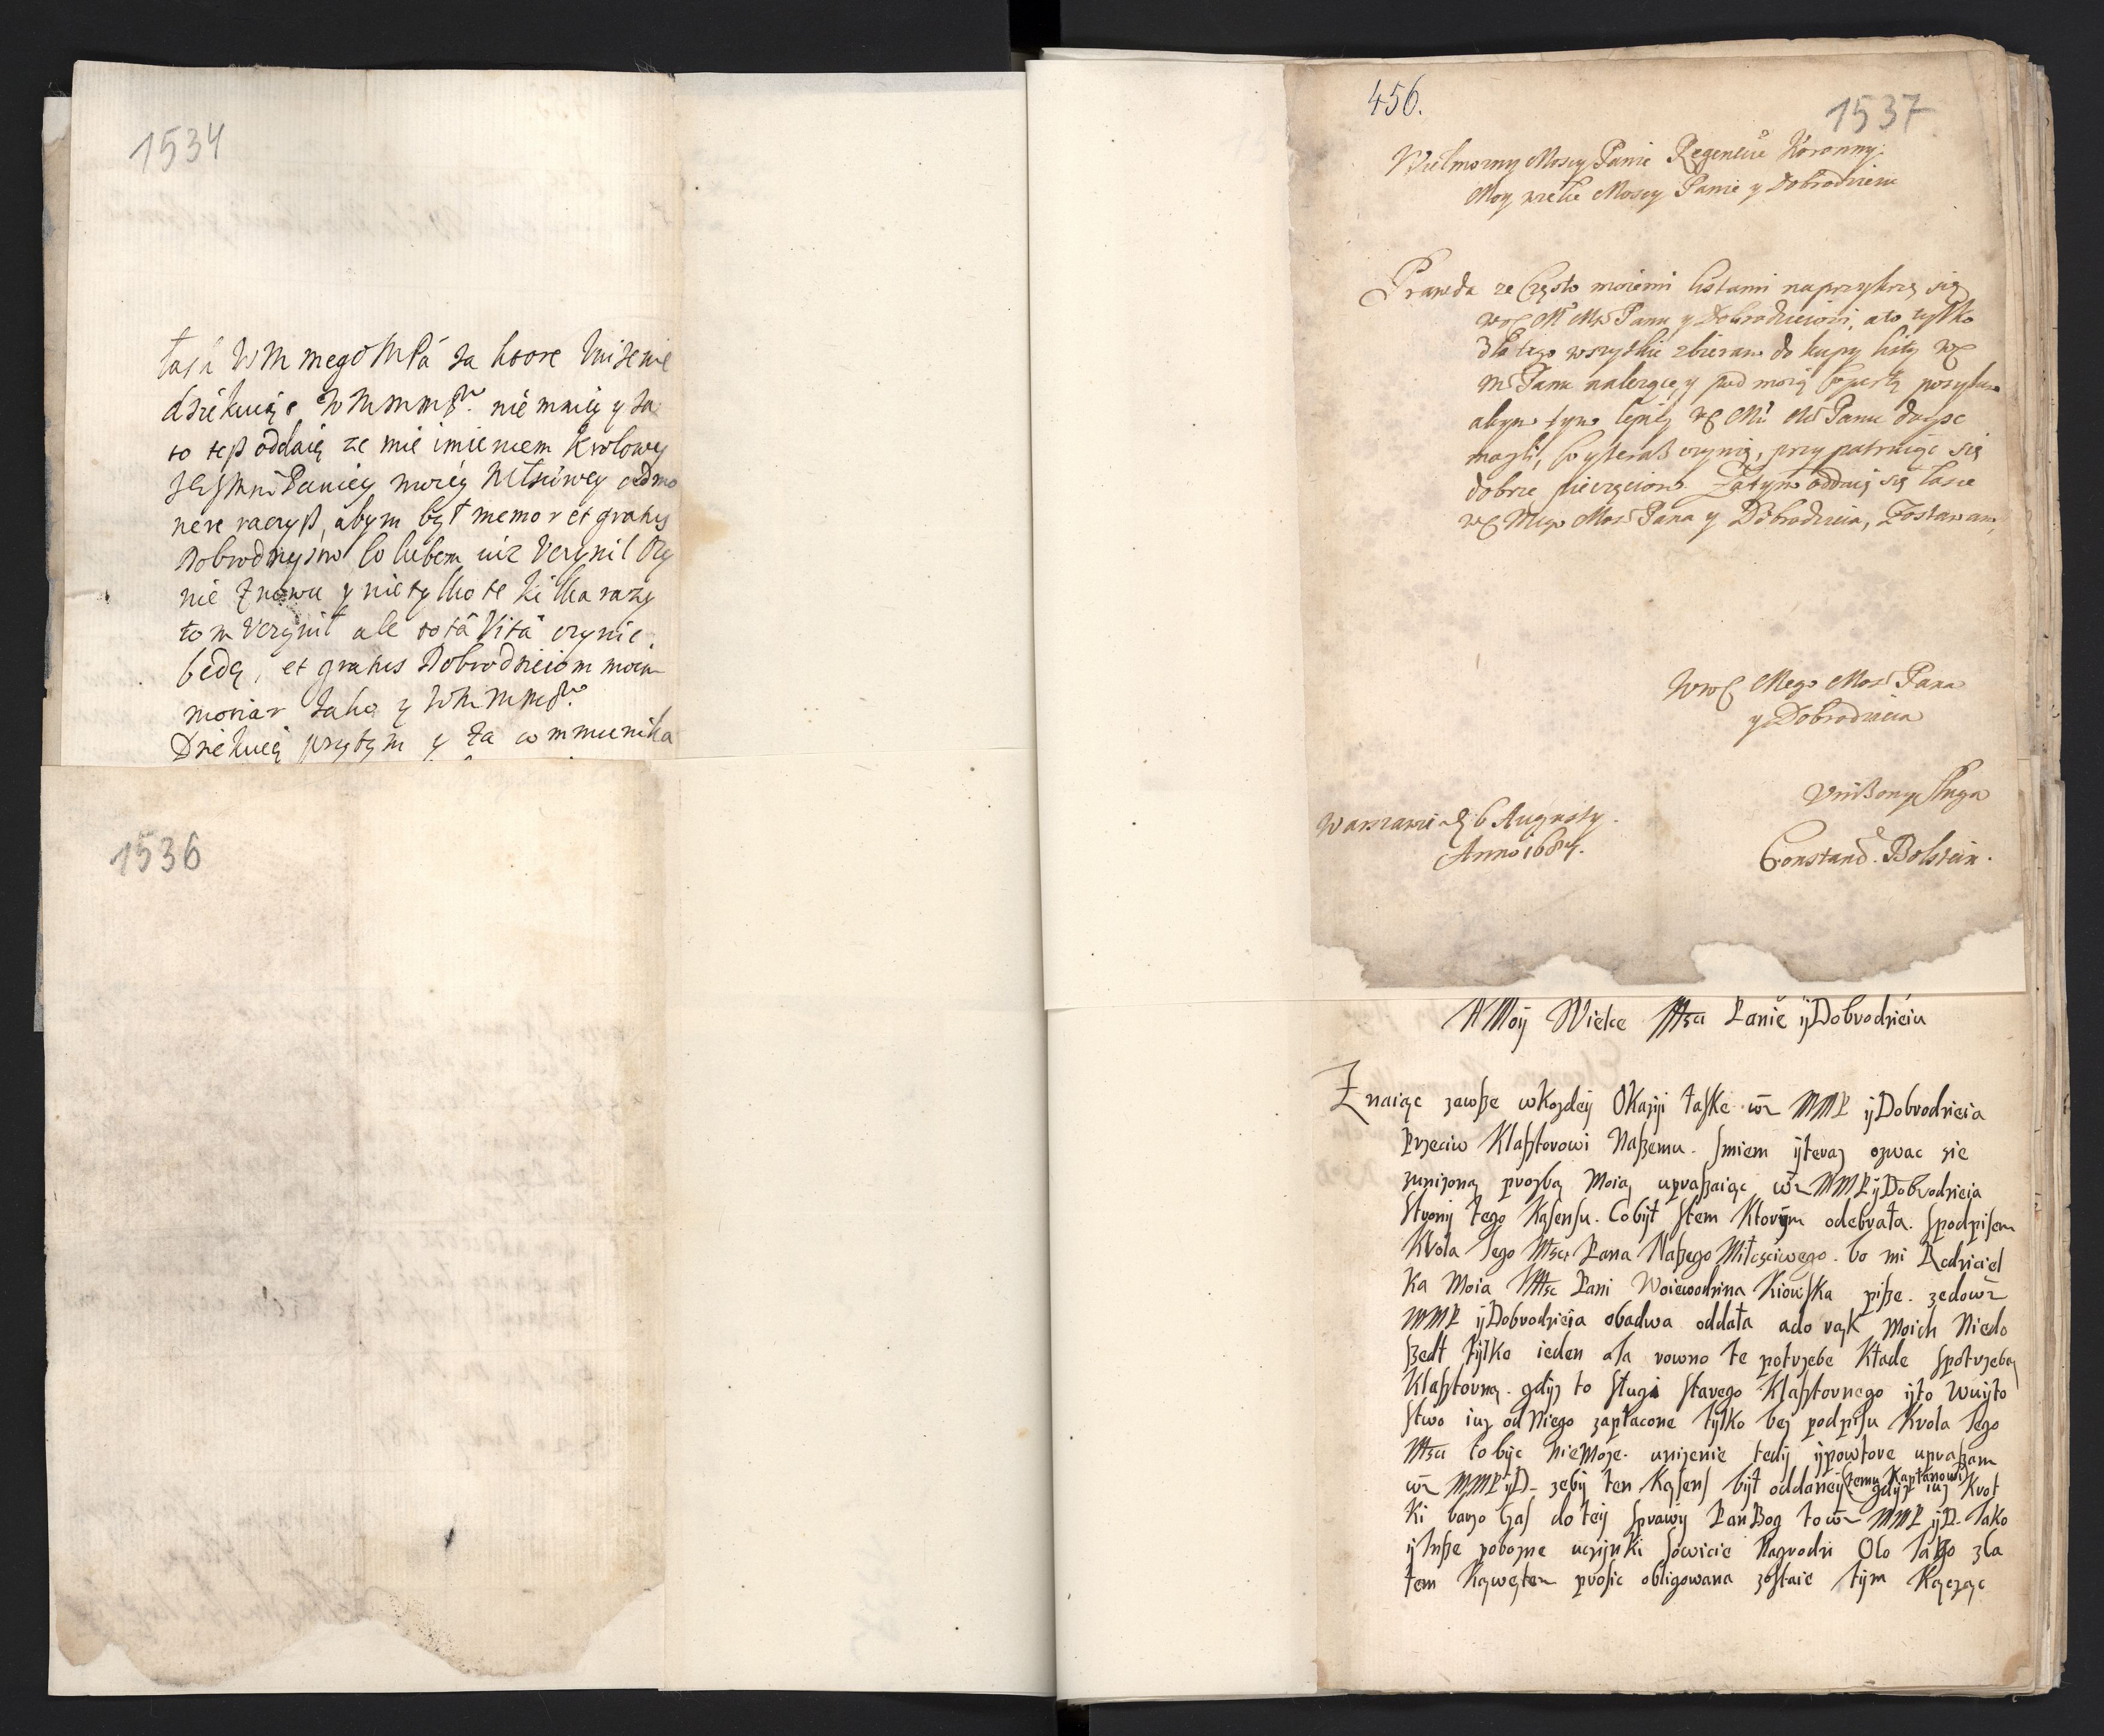 1534
łask WM mego MPa za ktore Uniżenie
dziękuię WMMMPu. nie mniey y za
to teß oddaię ze mie imieniem Krolowy
JeyMći Paniey moiey Młściwey admo
nere raczyß, abym był memor et gratus
Dobrodzieystw co lubom iuz Uczynił Czy
nie znowu y nie tylko te kilka razy
tom Uczynił ale totâ Vitâ czynic
będę, et gratus Dobrodzieiom moim
moriar Jako y WMMMPu.
Dziekuię przytym y za communika
1536
456.
1537
Wielmozny Moscy Panie Regencie Koronny
Moy wielce Moscy Panie y Dobrodzieiu
Prawda ze często moiemi listami naprzykrzę się
M Ms Panu y Dobrodzieiowi, a to tylko
dla tego wszystkie zbieram do kupy listy
Ms Panu nalezące, y pod moią kopertą posyłam
abym tym lepiey Ms Panu doyse
mogli, co y teraß czynię, przypatruiąc się
dobrze pieczęciom. Zatym oddaię się łasce
Mego Mos Pana y Dobrodzieia, Zostawam,
Mego Mos Pana
y Dobrodzieia
Uniżony sługa
Warszawie d 6 Augusty.
Anno 1684.
Constand. Bolstein.
Moÿ Wielce Msci Panie ÿ Dobrodzieiu
Znaiąc zawße w Kozdeÿ Okazÿi łaske MMP ÿ Dobrodzieia
Przeciw Klaßtorowi Naßemu. smiem ÿ teraz ozwac sie
zunizoną prozbą Moią upraßaiąc MMP ÿ Dobrodzieia
Stronÿ tego Kąsensu. Co bÿł stem Ktorÿm odebrała. spodpisem
Krola Jego Msci Pana Naßego Miłosciwego. bo mi Rodziciel
ka Moia Msc Pani Woiewodzina Kiowska piße. ze do
MMP ÿ Dobrodzieia obadwa oddała a do rąk Moich Niedo
ßedł tÿlko ieden a Ja rowno te potrzebe Kłade spotrzebą
Klaßtorną. gdÿz to sługi starego Klaßtornego ÿ to Wuÿto
stwo iuz od Niego zapłacone tÿlko bez podpisu Krola Jego
Msci to bÿc nie Moze. unizenie tedÿ ÿ powtore upraßam
MMP ÿ D. zebÿ ten Kąsens bÿł oddanÿ (temu Kapłanowi) gdÿz iuz Krot
ki barzo Czas do teÿ sprawÿ Pan Bog to MMP ÿ D. Jako
ÿ Inße pobozne uczÿnki sowicie Nagrodzi O to Jako zla
tem Kąwętem prosic obligowana zostaie tÿm Kącząc